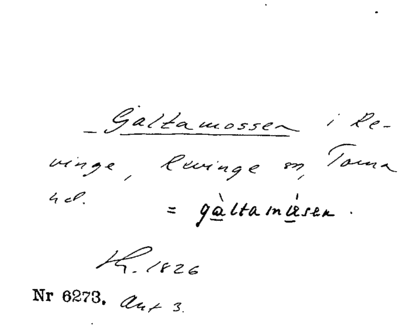 _ Galtamossen i Re-
vinge, Revinge sn, Torna
hd. = gàltamósen.
Kh. 1826
Nr 6273. Ant 3.